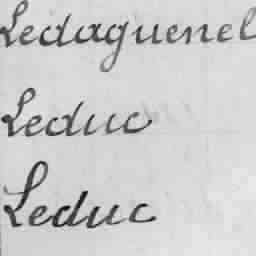 Ledaguenel
Leduc
Leduc